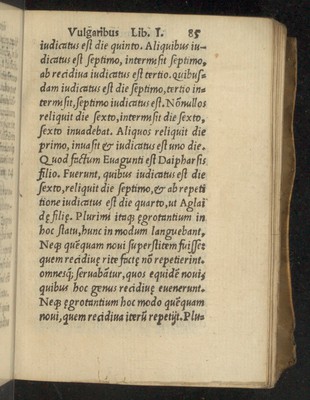 Vulgaribus Lib. I. 85
iudicatus est die quinto. Aliquibus iu-
dicatus est septimo, intermisit septimo,
ab recidiua iudicatus est tertio. Quibus-
dam iudicatus est die septimo, tertio in-
termisit, septimo iudicatus est. Nõnullos
reliquit die sexto, intermisit die sexto,
sexto inuadebat. Aliquos reliquit die
primo, inuasit & iudicatus est uno die.
Quod factum Euagunti est Daipharsis
filio. Fuerunt, quibus iudicatus est die
sexto, reliquit die septimo, & ab repeti
tione iudicatus est die quarto, ut Aglai
dę filię. Plurimi itaq; ęgrotantium in
hoc statu, hunc in modum languebant.
Neq; quẽquam noui superstitem fuisse,
quem recidiuę rite factę nõ repetierint.
omnesq; seruabãtur, quos equidẽ noui,
quibus hoc genus recidiuę euenerunt.
Neq; ęgrotantium hoc modo quẽquam
noui, quem recidiua iterũ repetijt. Plu-